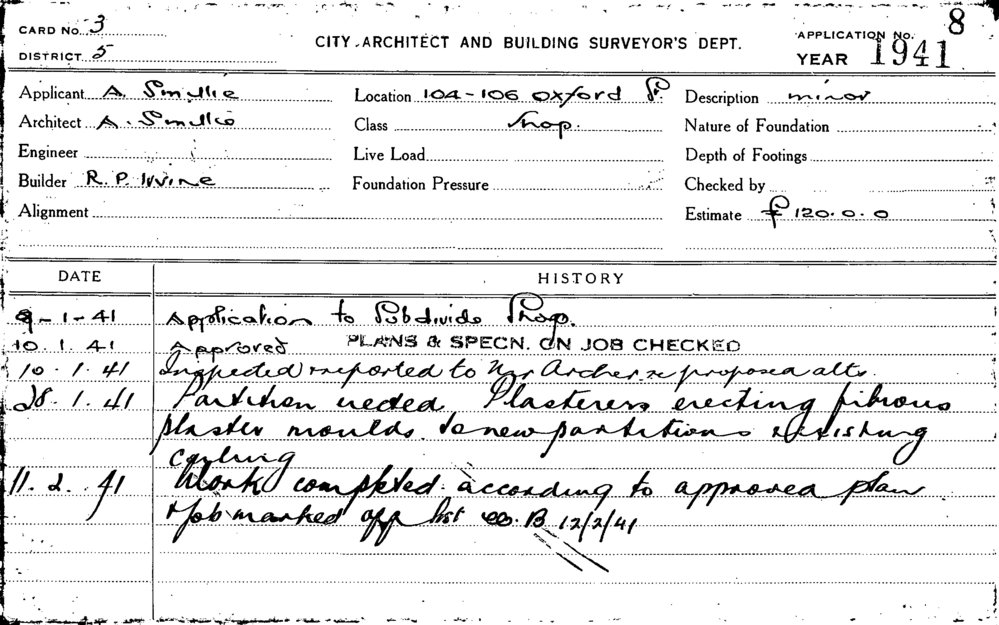 CARD No. 3
DISTRICT 5
CITY ARCHITECT AND BUILDING SURVEYOR'S DEPT.
APPLICATION No. 8
YEAR 1941
Applicant A. Smillie
Location 104-106 Oxford St.
Description minor
Architect A. Smillie
Class Shop.
Nature of Foundation
Engineer
Live Load
Depth of Footings
Builder R. P. Irvine
Foundation Pressure
Checked by
Alignment
Estimate £ 120.0.0
DATE HISTORY
9-1-41 Application to Subdivide Shop.
10.1.41 Approved PLANS & SPECN. ON JOB CHECKED
10.1.41 Inspected & reported to Mr Archer re proposed alts.
28.1.41 Partition erected. Plasterers erecting fibrous
plaster moulds to new partitions & existing
ceiling
11.2.41 Work completed according to approved plan
& job marked off list B 12/2/41